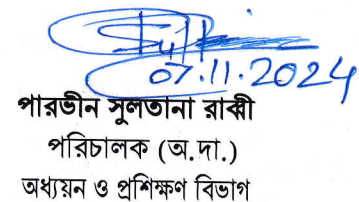 07.11.2024
পারভীন সুলতানা রাব্বী
পরিচালক (অ.দা.)
অধ্যয়ন ও প্রশিক্ষণ বিভাগ